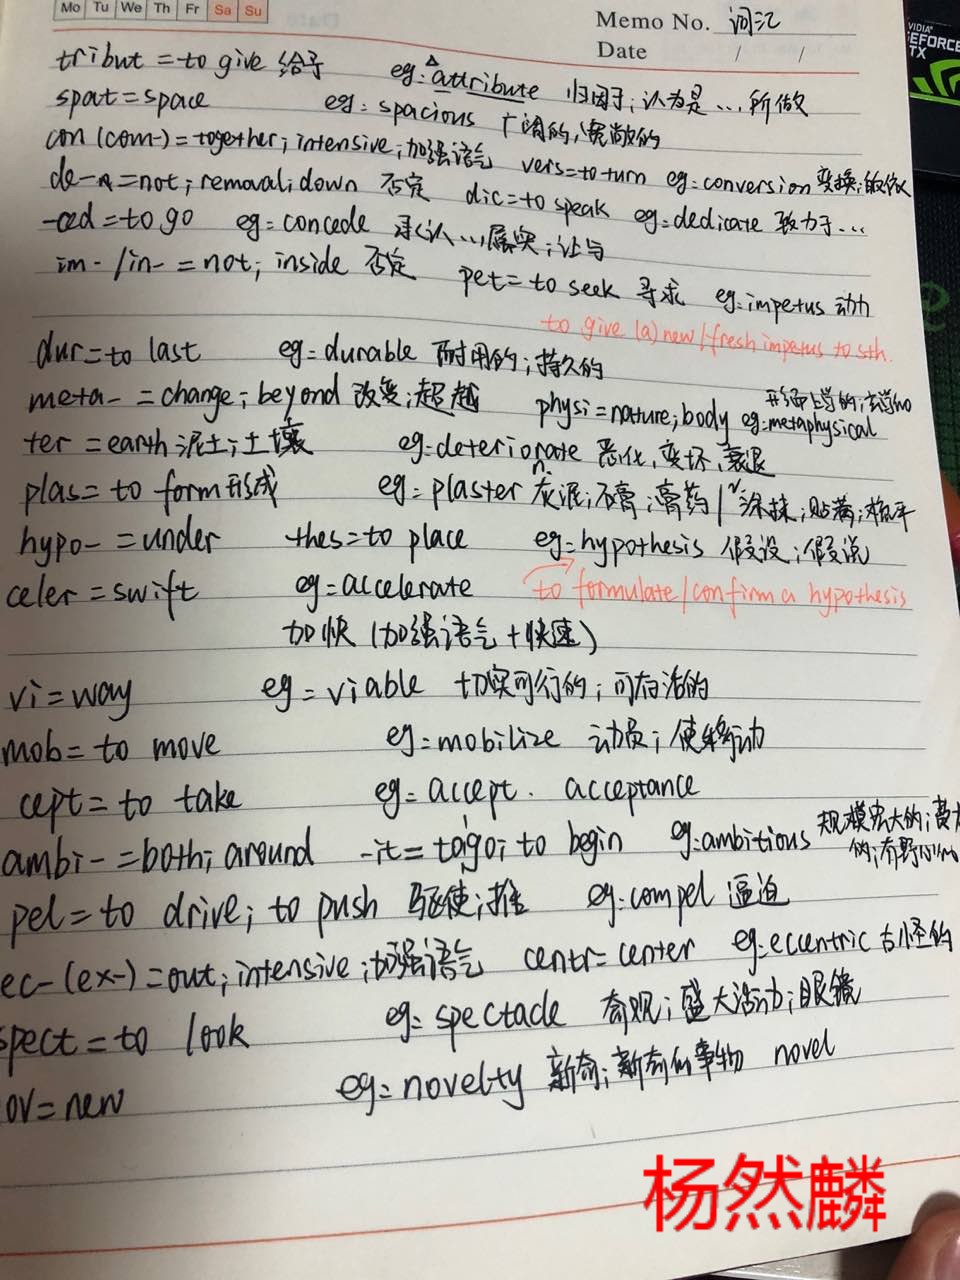 Mo Tu We Th Fr Sa Su
Memo No. 词汇
Date / /
VIDIA
EFORCE
TX
tribut = to give 给予 eg: attribute 归因于;认为是…所做
spat = space eg: spacious 广阔的,宽敞的
con (com-) = together; intensive;加强语气 vers = to turn eg: conversion 变换;
de- = not; removal; down 否定 dic = to speak eg: dedicate 致力于…
-ced = to go eg: concede 承认…属实;让与
im- /in- = not; inside 否定 pet = to seek 寻求 eg: impetus 动力
to give (a) new / fresh impetus to sth.
dur = to last eg: durable 耐用的;持久的
meta- = change; beyond 改变;超越 physi = nature; body eg: metaphysical 形而上学的;
ter = earth 泥土;土壤 eg: deteriorate 恶化,变坏,衰退
plas = to form 形成 eg: plaster n. 灰泥;石膏;膏药 / v. 涂抹;贴满;
hypo- = under thes = to place eg: hypothesis 假设;假说
celer = swift eg: accelerate to formulate / confirm a hypothesis
加快 (加强语气 + 快速)
vi = way eg: viable 切实可行的;可存活的
mob = to move eg: mobilize 动员;使移动
cept = to take eg: accept. acceptance
ambi- = both; around -it = to go; to begin eg: ambitious 规模宏大的;费力的;有野心的
pel = to drive; to push 驱使;推 eg: compel 逼迫
ec- (ex-) = out; intensive;加强语气 centr = center eg: eccentric 古怪的
spect = to look eg: spectacle 奇观;盛大活动;眼镜
ov = new eg: novelty 新奇;新奇的事物 novel
杨然麟